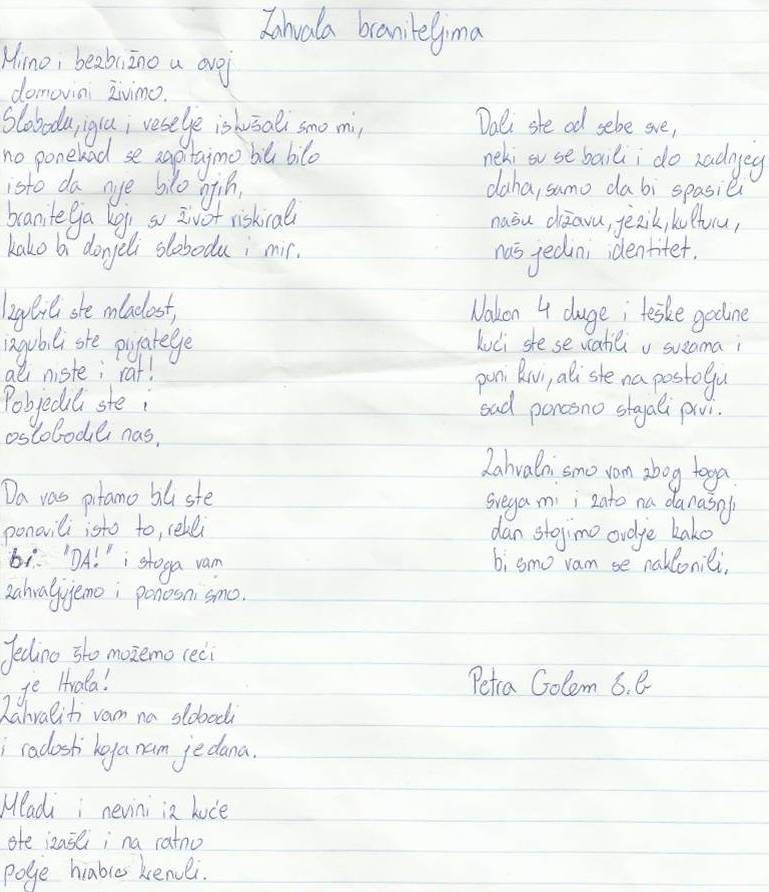 Zahvala braniteljima
Mirno i bezbrižno u ovoj
domovini živimo.
Slobodu, igru i veselje iskušali smo mi,
no ponekad se zapitajmo bili bilo
isto da nije bilo njih,
branitelja koji su život riskirali
kako bi donjeli slobodu i mir.
Izgubili ste mladost,
izgubili ste prijatelje
ali niste i rat!
Pobjedili ste i
oslobodili nas.
Da vas pitamo bili ste
ponovili isto to, rekli
bi "DA!" i stoga vam
zahvaljujemo i ponosni smo.
Jedino što možemo reći
je Hvala!
Zahvaliti vam na slobodi
i radosti koja nam je dana.
Mladi i nevini iz kuće
ste izašli i na ratno
polje hrabro krenuli.
Dali ste od sebe sve,
neki su se borili i do zadnjeg
daha, samo da bi spasili
našu državu, jezik, kulturu,
naš jedini identitet.
Nakon 4 duge i teške godine
kući ste se vratili u suzama i
puni krvi, ali ste na postolju
sad ponosno stajali prvi.
Zahvalni smo vam zbog toga
svega mi i zato na današnji
dan stojimo ovdje kako
bi smo vam se naklonili.
Petra Golem 8.b